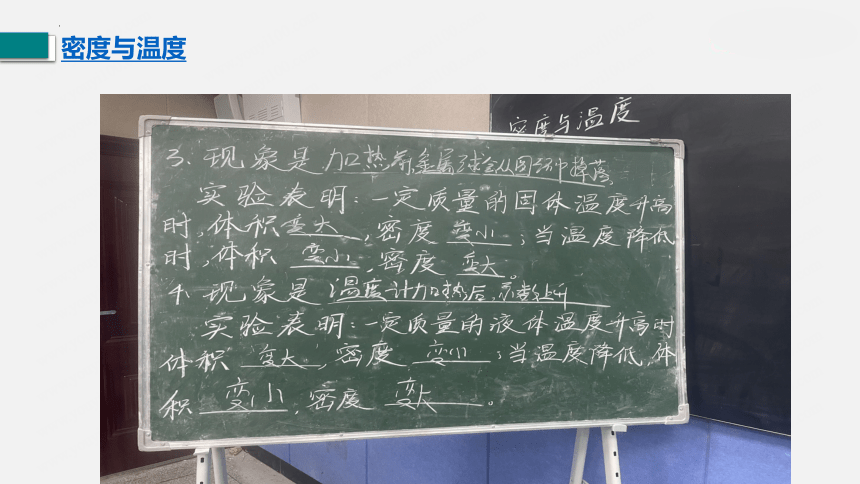 密度与温度
密度与温度
3、现象是 加热前金属球会从圆环中掉落。
实验表明:一定质量的固体温度升高
时,体积变大,密度 变小;当温度降低
时,体积 变小,密度 变大。
4、现象是 温度计加热后,示数上升
实验表明:一定质量的液体温度升高时
体积 变大,密度 变小;当温度降低,体
积 变小,密度 变大。